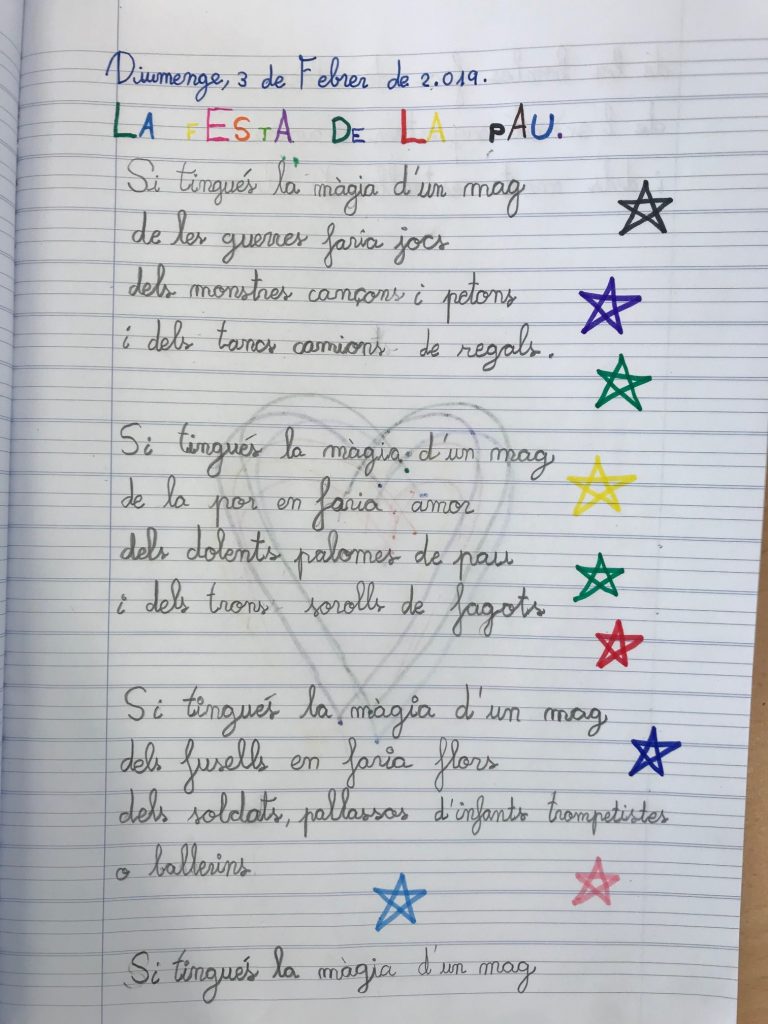 Diumenge, 3 de Febrer de 2.019.
LA FESTA DE LA PAU.
Si tingués la màgia d'un mag
de les guerres faria jocs
dels monstres cançons i petons
i dels tancs camions de regals.
Si tingués la màgia d'un mag
de la por en faria amor
dels dolents palomes de pau
i dels trons sorolls de fagots
Si tingués la màgia d'un mag
dels fusells en faria flors
dels soldats, pallassos d'infants trompetistes
o ballerins
Si tingués la màgia d'un mag